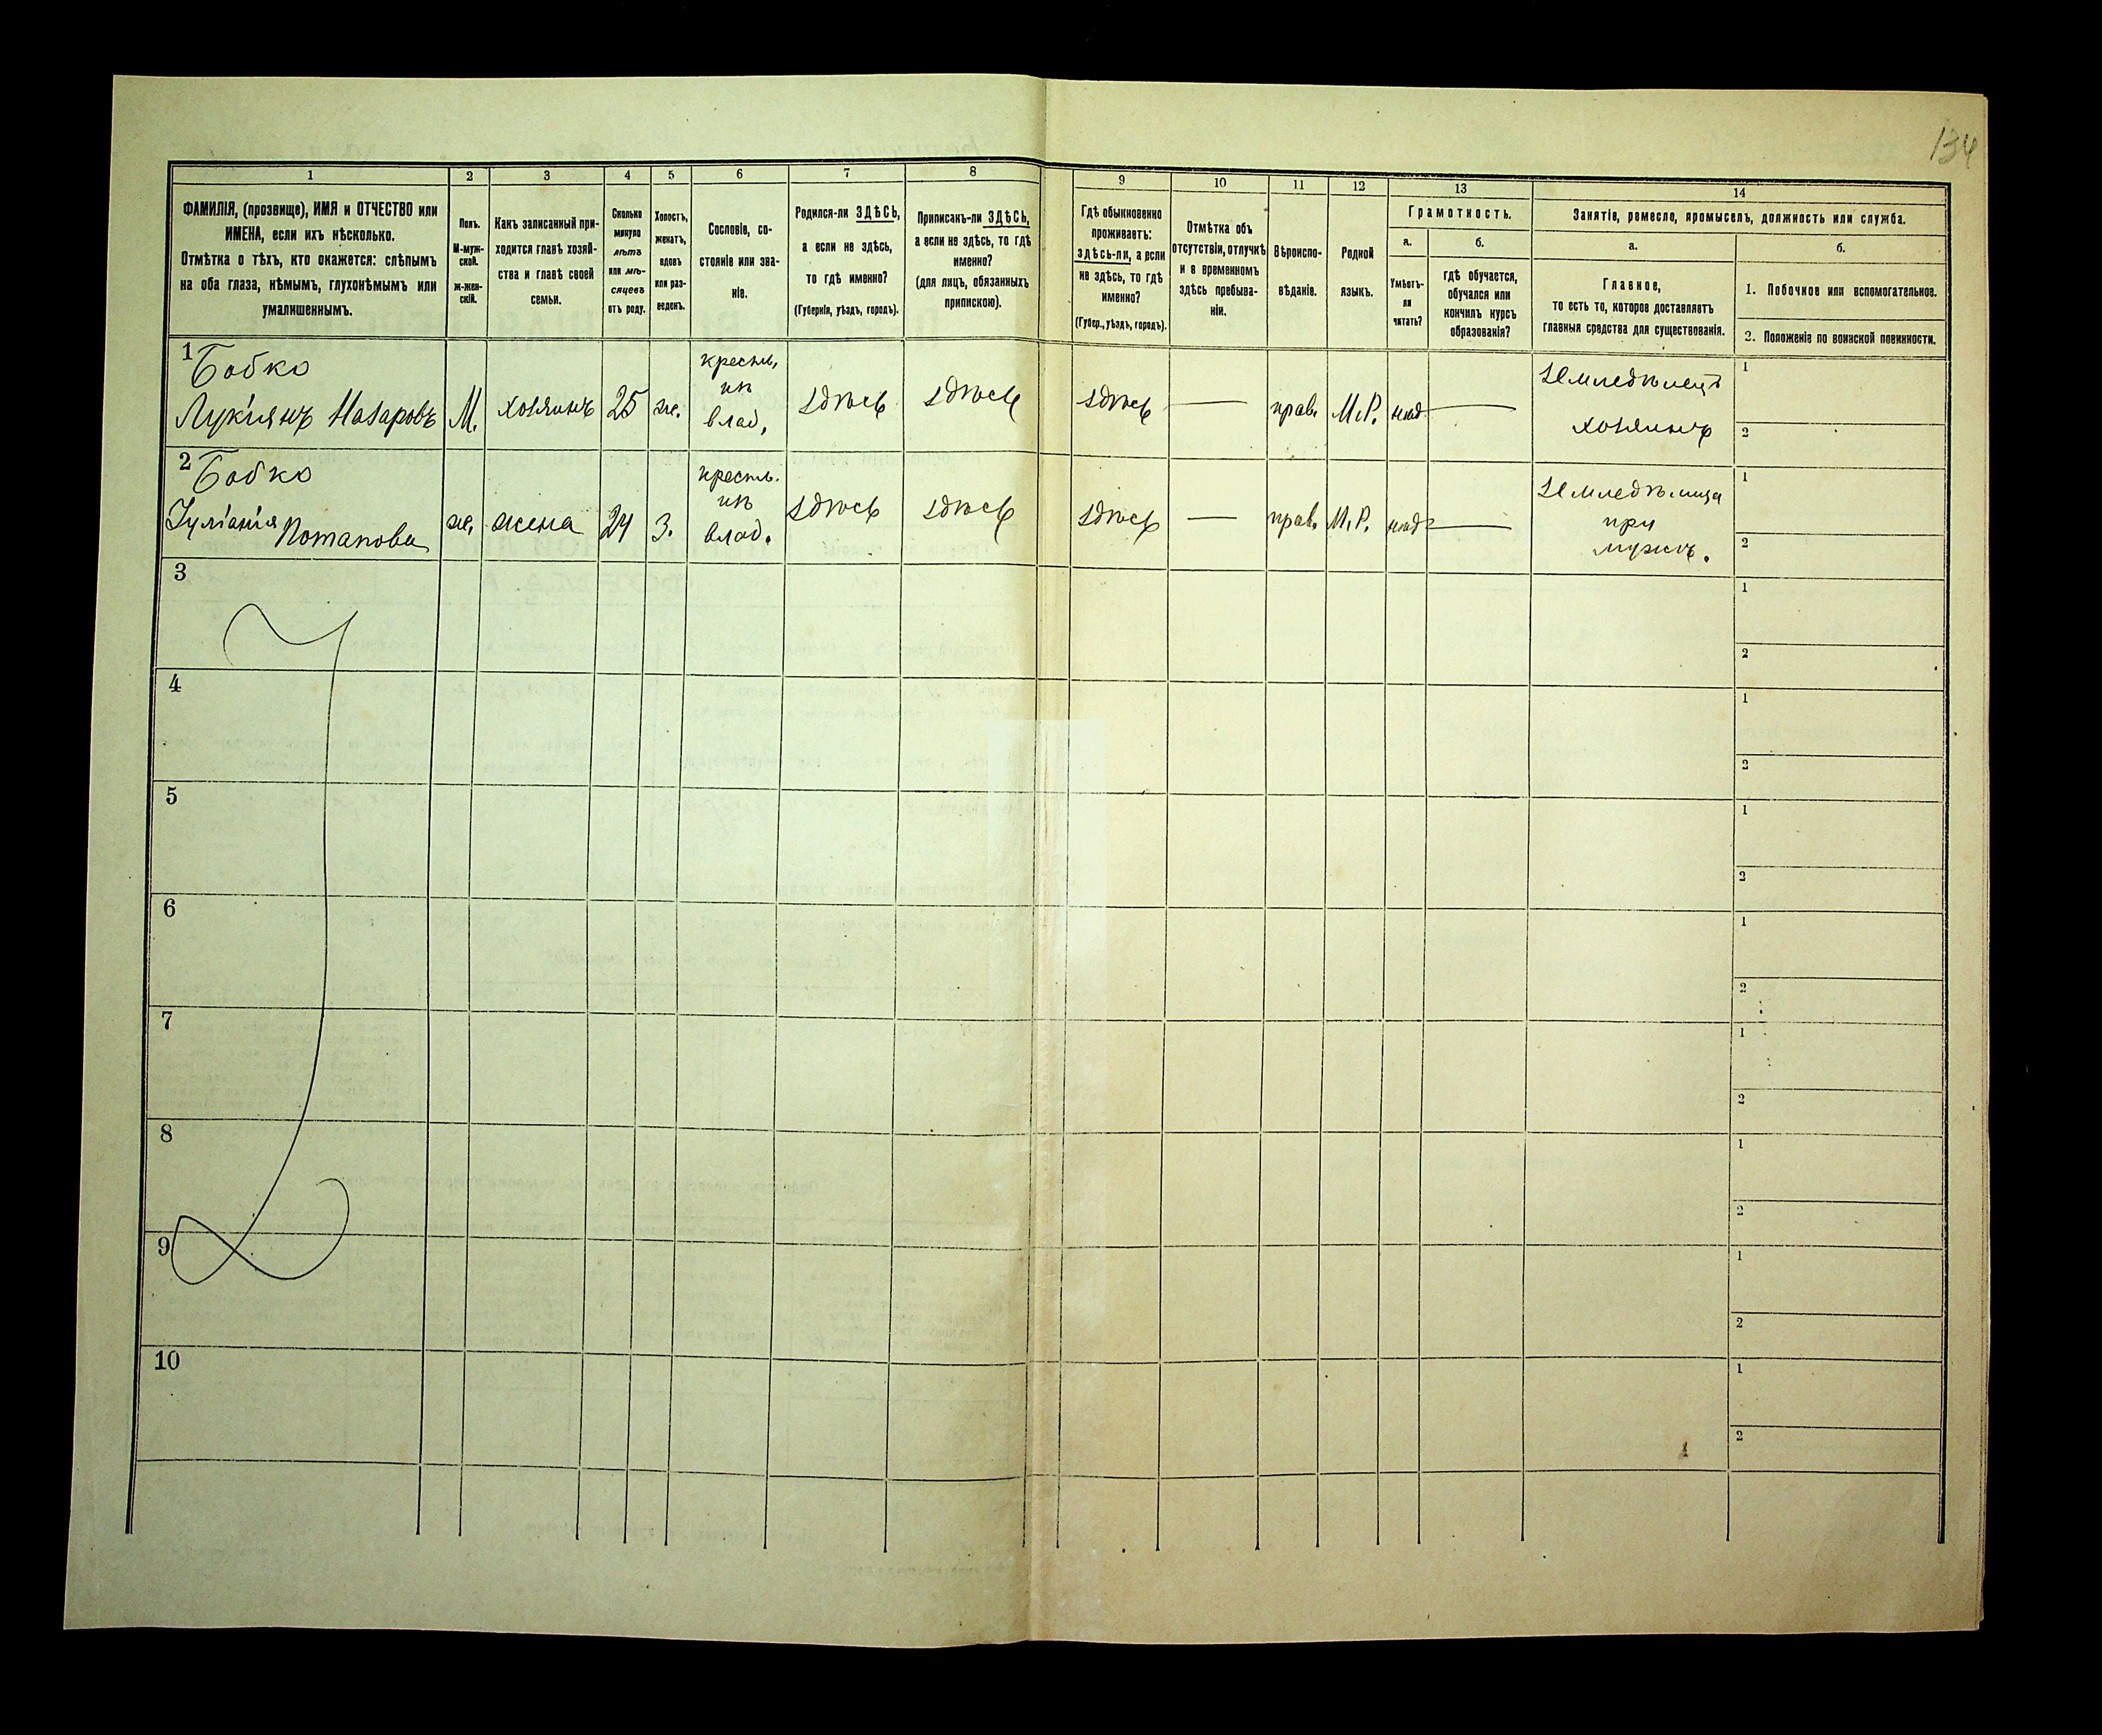 134
1
2
3
4
5
6
7
8
9
10
11
12
13
14
ФАМИЛІЯ, (прозвище), ИМЯ и ОТЧЕСТВО или
ИМЕНА, если ихъ нѣсколько.
Отмѣтка о тѣхъ, кто окажется: слѣпымъ
на оба глаза, нѣмымъ, глухонѣмымъ или
умалишеннымъ.
Полъ.
М-муж-
ской.
ж-жен-
скій.
Какъ записанный при-
ходится главѣ хозяй-
ства и главѣ своей
семьи.
Сколько
минуло
лѣтъ
или мѣ-
сяцевъ
отъ роду.
Холостъ,
женатъ,
вдовъ
или раз-
веденъ.
Сословіе, со-
стояніе или зва-
ніе.
Родился-ли ЗДѢСЬ,
а если не здѣсь,
то гдѣ именно?
(Губернія, уѣздъ, городъ).
Приписанъ-ли ЗДѢСЬ,
а если не здѣсь, то гдѣ
именно?
(для лицъ, обязанныхъ
припискою).
Гдѣ обыкновенно
проживаетъ:
ЗДѢСЬ-ЛИ, а если
не здѣсь, то гдѣ
именно?
(Губер., уѣздъ, городъ).
Отмѣтка объ
отсутствіи, отлучкѣ
и о временномъ
здѣсь пребыва-
ніи.
Вѣроиспо-
вѣданіе.
Родной
языкъ.
Грамотность.
а.
Умѣетъ-
ли
читать?
б.
гдѣ обучается,
обучался или
кончилъ курсъ
образованія?
Занятіе, ремесло, промыселъ, должность или служба.
а.
Главное,
то есть то, которое доставляетъ
главныя средства для существованія.
б.
1. Побочное или вспомогательное.
2. Положеніе по воинской повинности.
1 Бобко
Лукіянъ Назаровъ
М.
хозяинъ
25
ж.
крестьян.
изъ
влад.
здѣсь
здѣсь
здѣсь
—
прав.
М.Р.
—
Земледѣлецъ
хозяинъ
1
2
2 Бобко
Іуліанія Потапова
ж.
жена
24
З.
крестьян.
изъ
влад.
здѣсь
здѣсь
здѣсь
—
прав.
М.Р.
—
Земледѣлица
при
мужѣ.
1
2
3
1
2
4
1
2
5
1
2
6
1
2
7
1
2
8
1
2
9
1
2
10
1
2